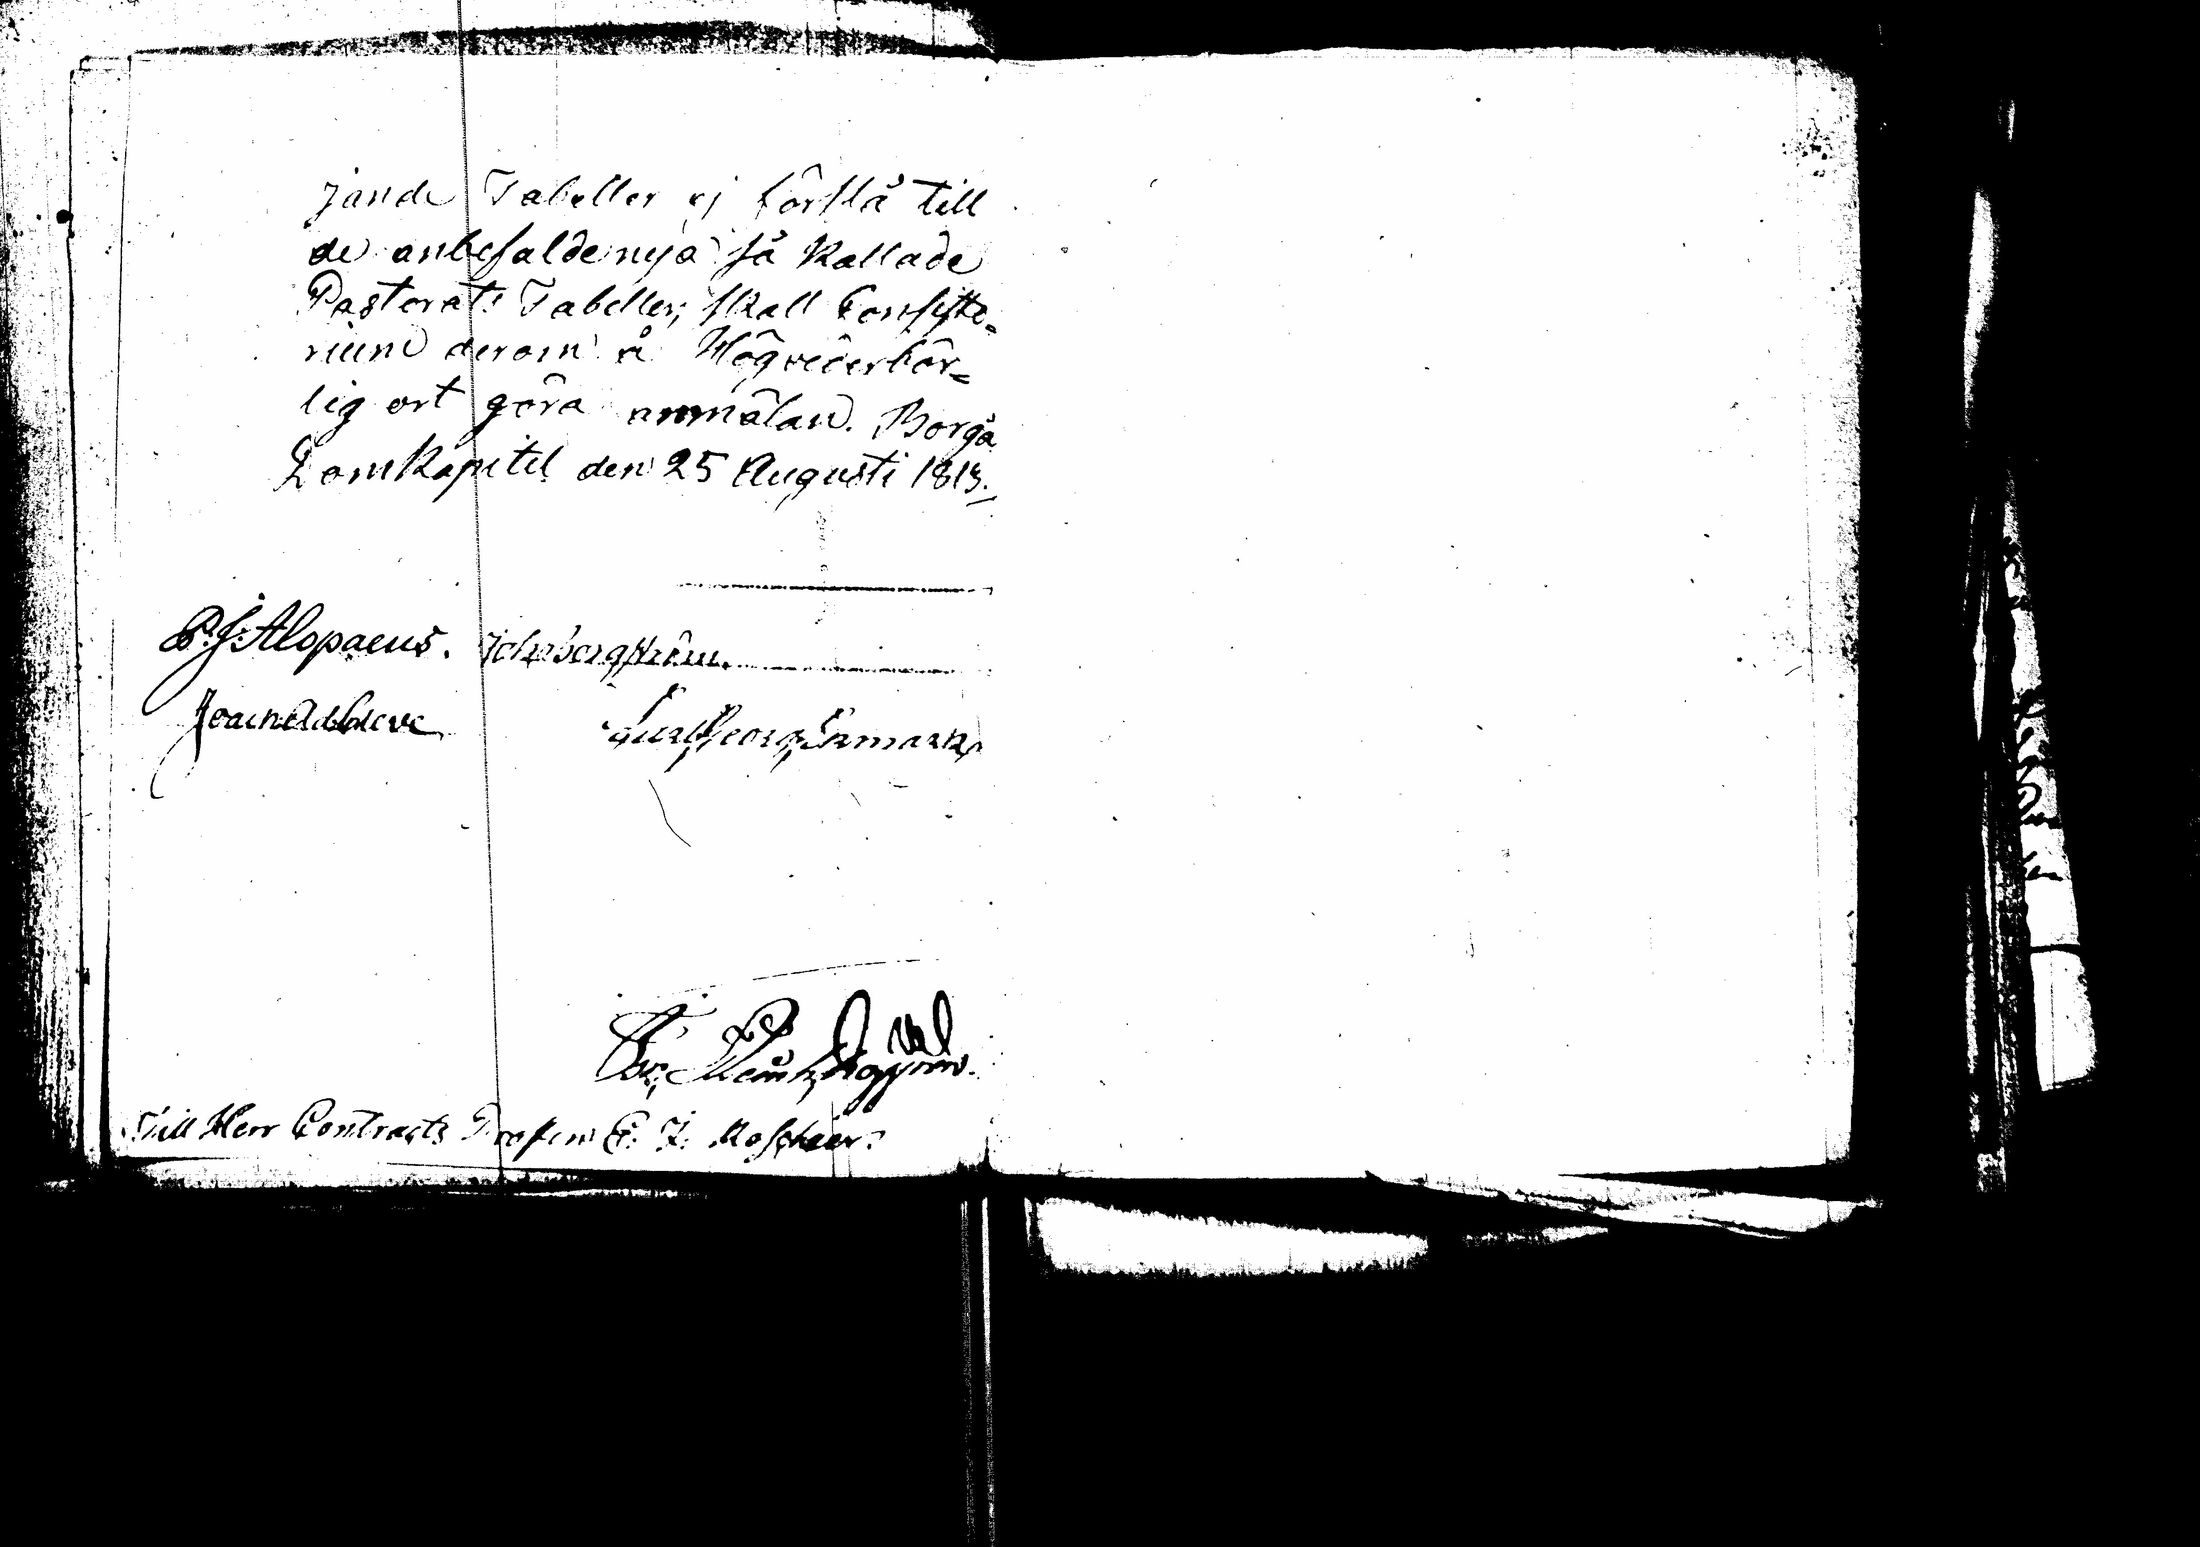 jande Tabeller ej förslå till
de anbefalde nya så kallade
Pastorats Tabeller; skall Consisto-
rium derom å Högvederbör-
lig ort göra anmälan. Borgå
Domkapitel den 25 Augusti 1813.
P. J. Alopaeus. Joh. Borgström.
Joach. Ad. Cleve
Carl Georg Enmark
Till Herr Contracts Prosten E. J.